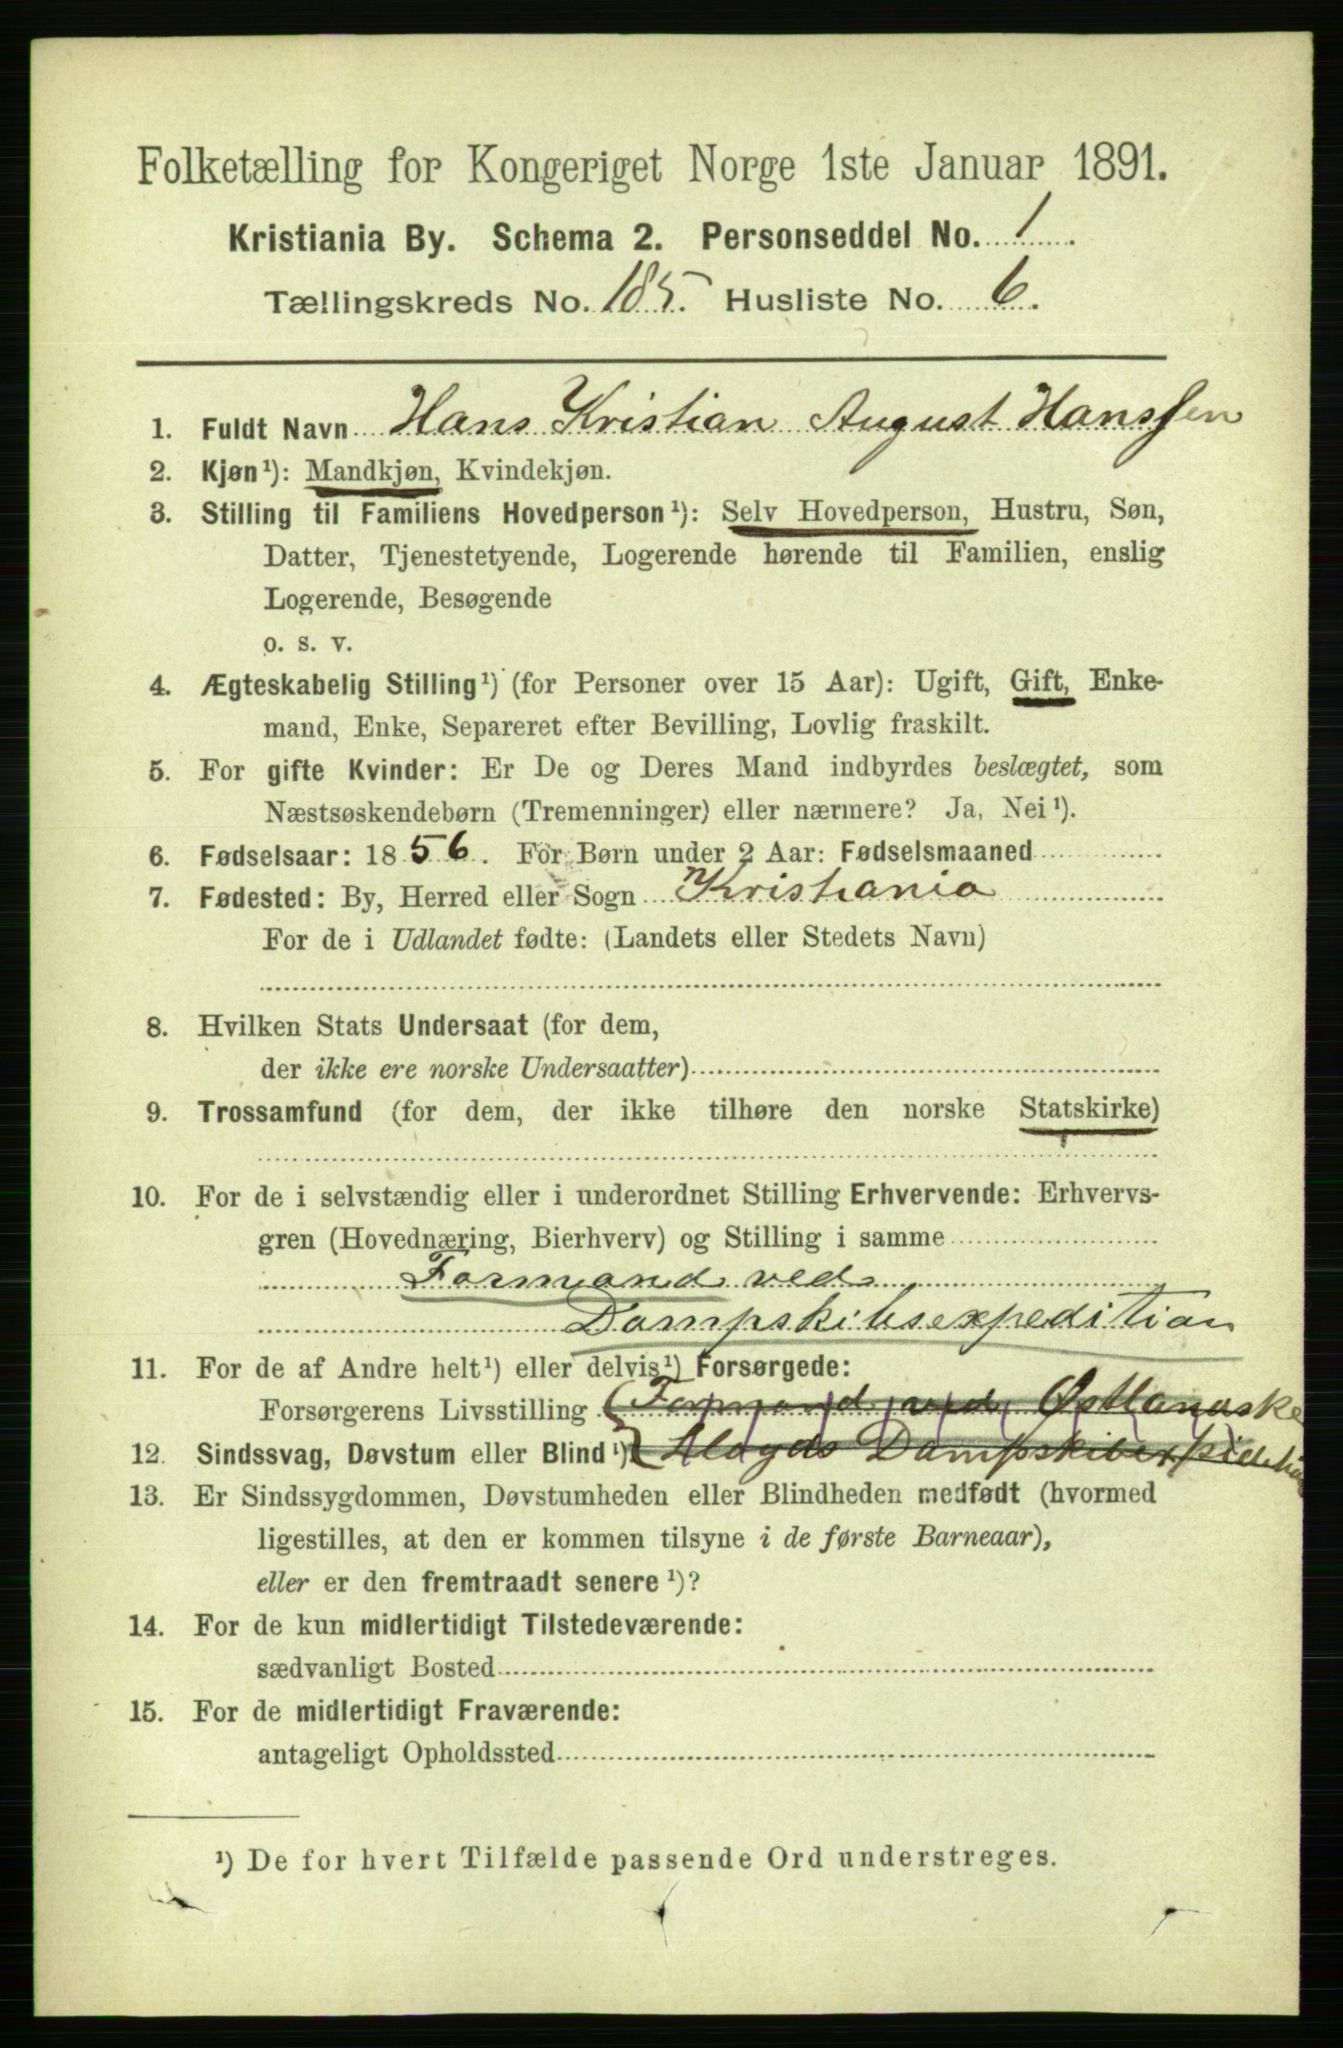 Folketælling for Kongeriget Norge 1ste Januar 1891.
Kristiania By. Schema 2. Personseddel No. 1.
Tællingskreds No. 185. Husliste No. 6.
1. Fuldt Navn Hans Kristian August Hanssen
2. Kjøn¹): Mandkjøn, Kvindekjøn.
3. Stilling til Familiens Hovedperson¹): Selv Hovedperson, Hustru, Søn,
Datter, Tjenestetyende, Logerende hørende til Familien, enslig
Logerende, Besøgende
o. s. v.
4. Ægteskabelig Stilling¹) (for Personer over 15 Aar): Ugift, Gift, Enke-
mand, Enke, Separeret efter Bevilling, Lovlig fraskilt.
5. For gifte Kvinder: Er De og Deres Mand indbyrdes beslægtet, som
Næstsøskendebørn (Tremenninger) eller nærmere? Ja, Nei¹).
6. Fødselsaar: 1856. For Børn under 2 Aar: Fødselsmaaned
7. Fødested: By, Herred eller Sogn Kristiania
For de i Udlandet fødte: (Landets eller Stedets Navn)
8. Hvilken Stats Undersaat (for dem,
der ikke ere norske Undersaatter)
9. Trossamfund (for dem, der ikke tilhøre den norske Statskirke)
10. For de i selvstændig eller i underordnet Stilling Erhvervende: Erhvervs-
gren (Hovednæring, Bierhverv) og Stilling i samme
Formand ved
Dampskibsexpedition
11. For de af Andre helt¹) eller delvis¹) Forsørgede:
Forsørgerens Livsstilling (Formand ved Østlandske
12. Sindssvag, Døvstum eller Blind¹). Lloyds
13. Er Sindssygdommen, Døvstumheden eller Blindheden medfødt (hvormed
ligestilles, at den er kommen tilsyne i de første Barneaar),
eller er den fremtraadt senere¹)?
14. For de kun midlertidigt Tilstedeværende:
sædvanligt Bosted
15. For de midlertidigt Fraværende:
antageligt Opholdssted
¹) De for hvert Tilfælde passende Ord understreges.